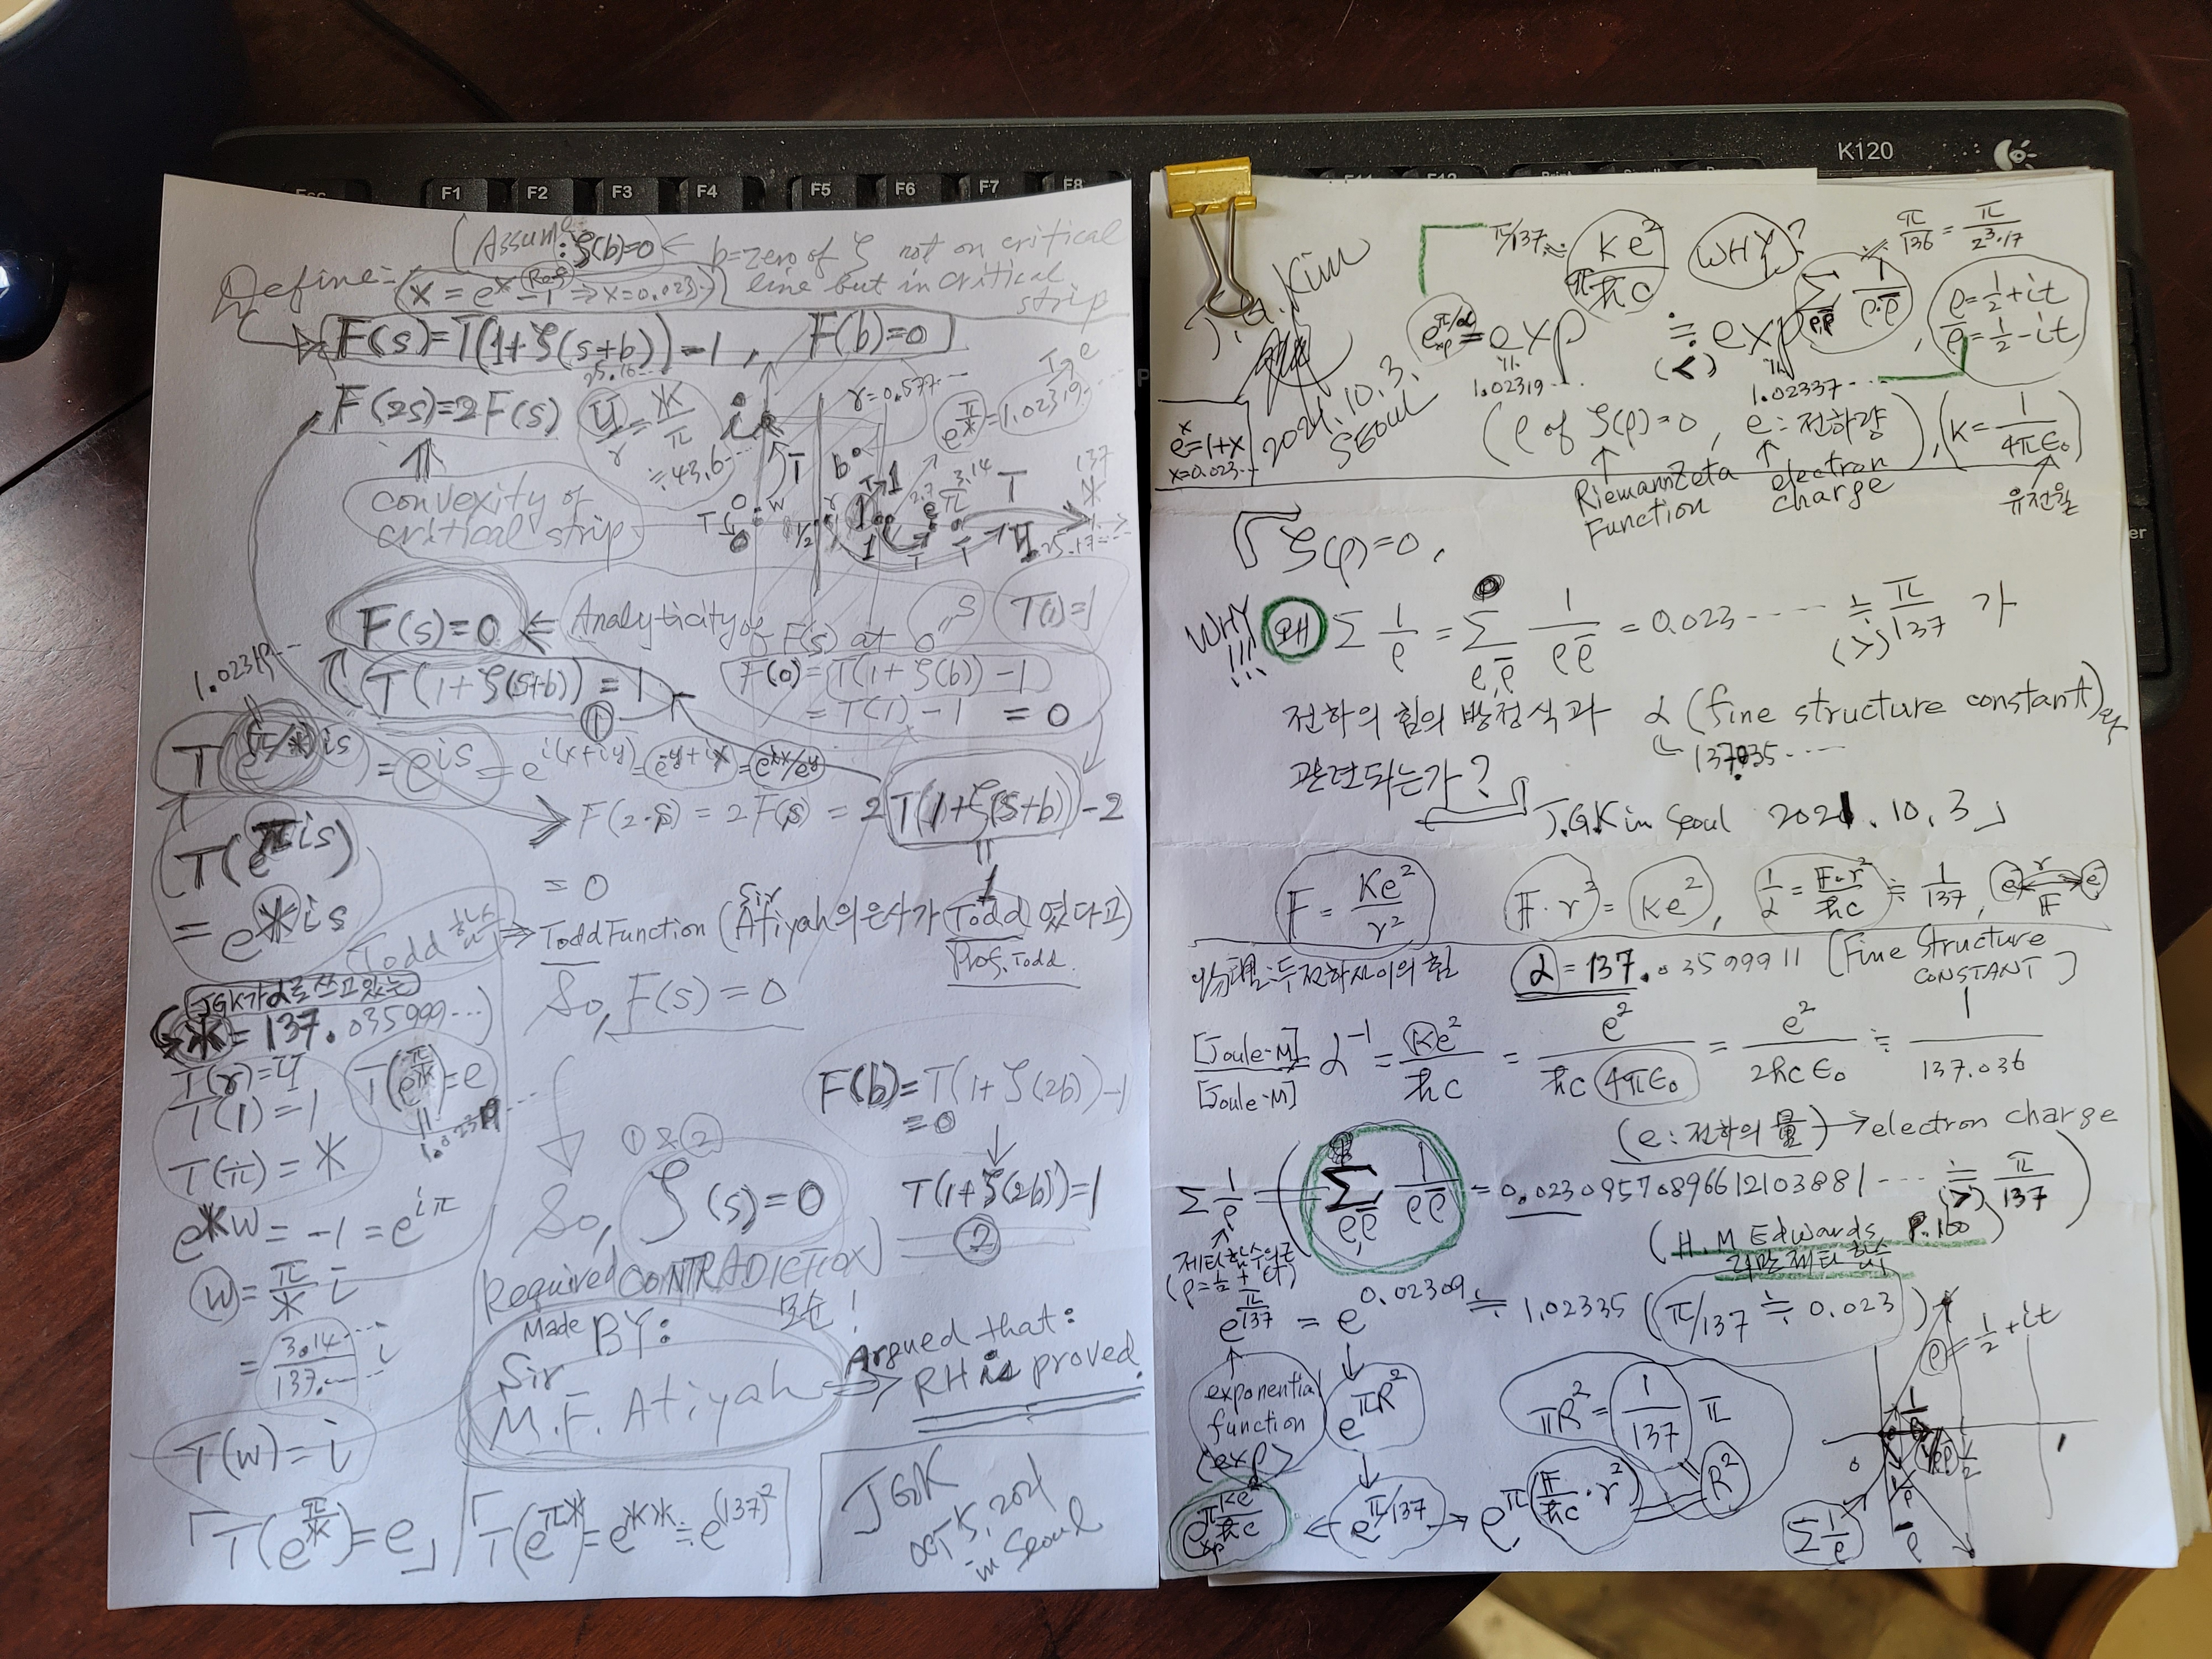 F1 F2 F3 F4 F5 F6 F7 F8
K120
(Assume: ζ(b)=0 ← b=zero of ζ not on critical
line but in critical
strip
Define:
x = e^x - 1 ⇒ x=0.023…
F(s)=T(1+ζ(s+b))-1, F(b)=0
F(2s)=2F(s)
≒43.6…
γ=0.577…
e^(π/ж)=1.02319…
convexity of
critical strip
F(s)=0 ⇐ Analyticity of
F(s) at 0
T(1)=1
1.02319…
T(1+ζ(s+b))=1
①
F(0)=T(1+ζ(b))-1
=T(1)-1=0
T(e^(π/ж)is)=e^is=e^i(x+iy)=e^(-y+ix)=e^ix/e^y
→F(2·s)=2F(s)=2T(1+ζ(s+b))-2
1
=0
T(e^π is)
=e^ж is
Todd 함수 ⇒ Todd Function (Sir Atiyah의 은사가 Todd 였다고)
Prof. Todd
JGK가 α로 쓰고 있는
ж=137.035999…
So, F(s)=0
T(γ)=Ч
T(1)=1
T(π)=ж
T(e^(π/ж))=e
1.02319…
F(b)=T(1+ζ(2b))-1
=0
T(1+ζ(2b))=1
②
①&②
So, ζ(s)=0
e^жw=-1=e^iπ
w=π/ж i
=3.14…/137.… i
Required CONTRADICTION
모순!
Made BY:
Sir
M.F. Atiyah
Argued that:
RH is proved.
T(w)=i
「T(e^(π/ж))=e」
「T(e^πж)=e^жж≒e^(137)²
JGK
OCT 5, 2021
in Seoul
J.G.Kim
2021.10.3.
SEOUL
e^x=1+x
x=0.023…
π/137≒ Ke²/ħc π WHY? π/136=π/(2³·17)
e^(π/α)=exp ≒ exp Σ 1/(ρ·ρ̄), ρ=1/2+it
ρ̄=1/2-it
1.02319… (<) 1.02337…
(ρ of ζ(ρ)=0, e: 전하량), (K=1/(4πε₀))
Riemann Zeta
Function
electron
charge
유전율
「ζ(ρ)=0,
WHY!!! 왜 Σ 1/ρ = Σ 1/(ρρ̄) = 0.023…… ≒ π/137 가
(>)
전하의 힘의 방정식과 α (fine structure constant)와
137.035…
관련되는가?
J.G.K in Seoul 2021.10.3」
F=Ke²/r² F·r²=Ke², 1/α=F·r²/ħc≒1/137, e r e
F
두전하사이의 힘
α=137.03599911 [Fine Structure
CONSTANT]
[Joule-M]/[Joule-M] = α⁻¹ = Ke²/ħc = e²/(ħc 4πε₀) = e²/(2hcε₀) ≒ 1/137.036
(e: 전하의 量) → electron charge
Σ 1/ρ = (Σ 1/(ρρ̄) = 0.0230957089661210338​81… ≒ π/137)
(>)
제타함수의 근
(ρ=1/2+it)
(H.M Edwards P.160
리만 제타 함수
e^(π/137)=e^0.02309≒1.02335 (π/137≒0.023)
exponential
function
(exp)
e^πR²
πR²=1/137 π
R²
exp π Ke²/ħc ← e^(π/137) → e^π(F/ħc·r²)
ρ=1/2+it
0 1/2 1
Σ 1/ρ